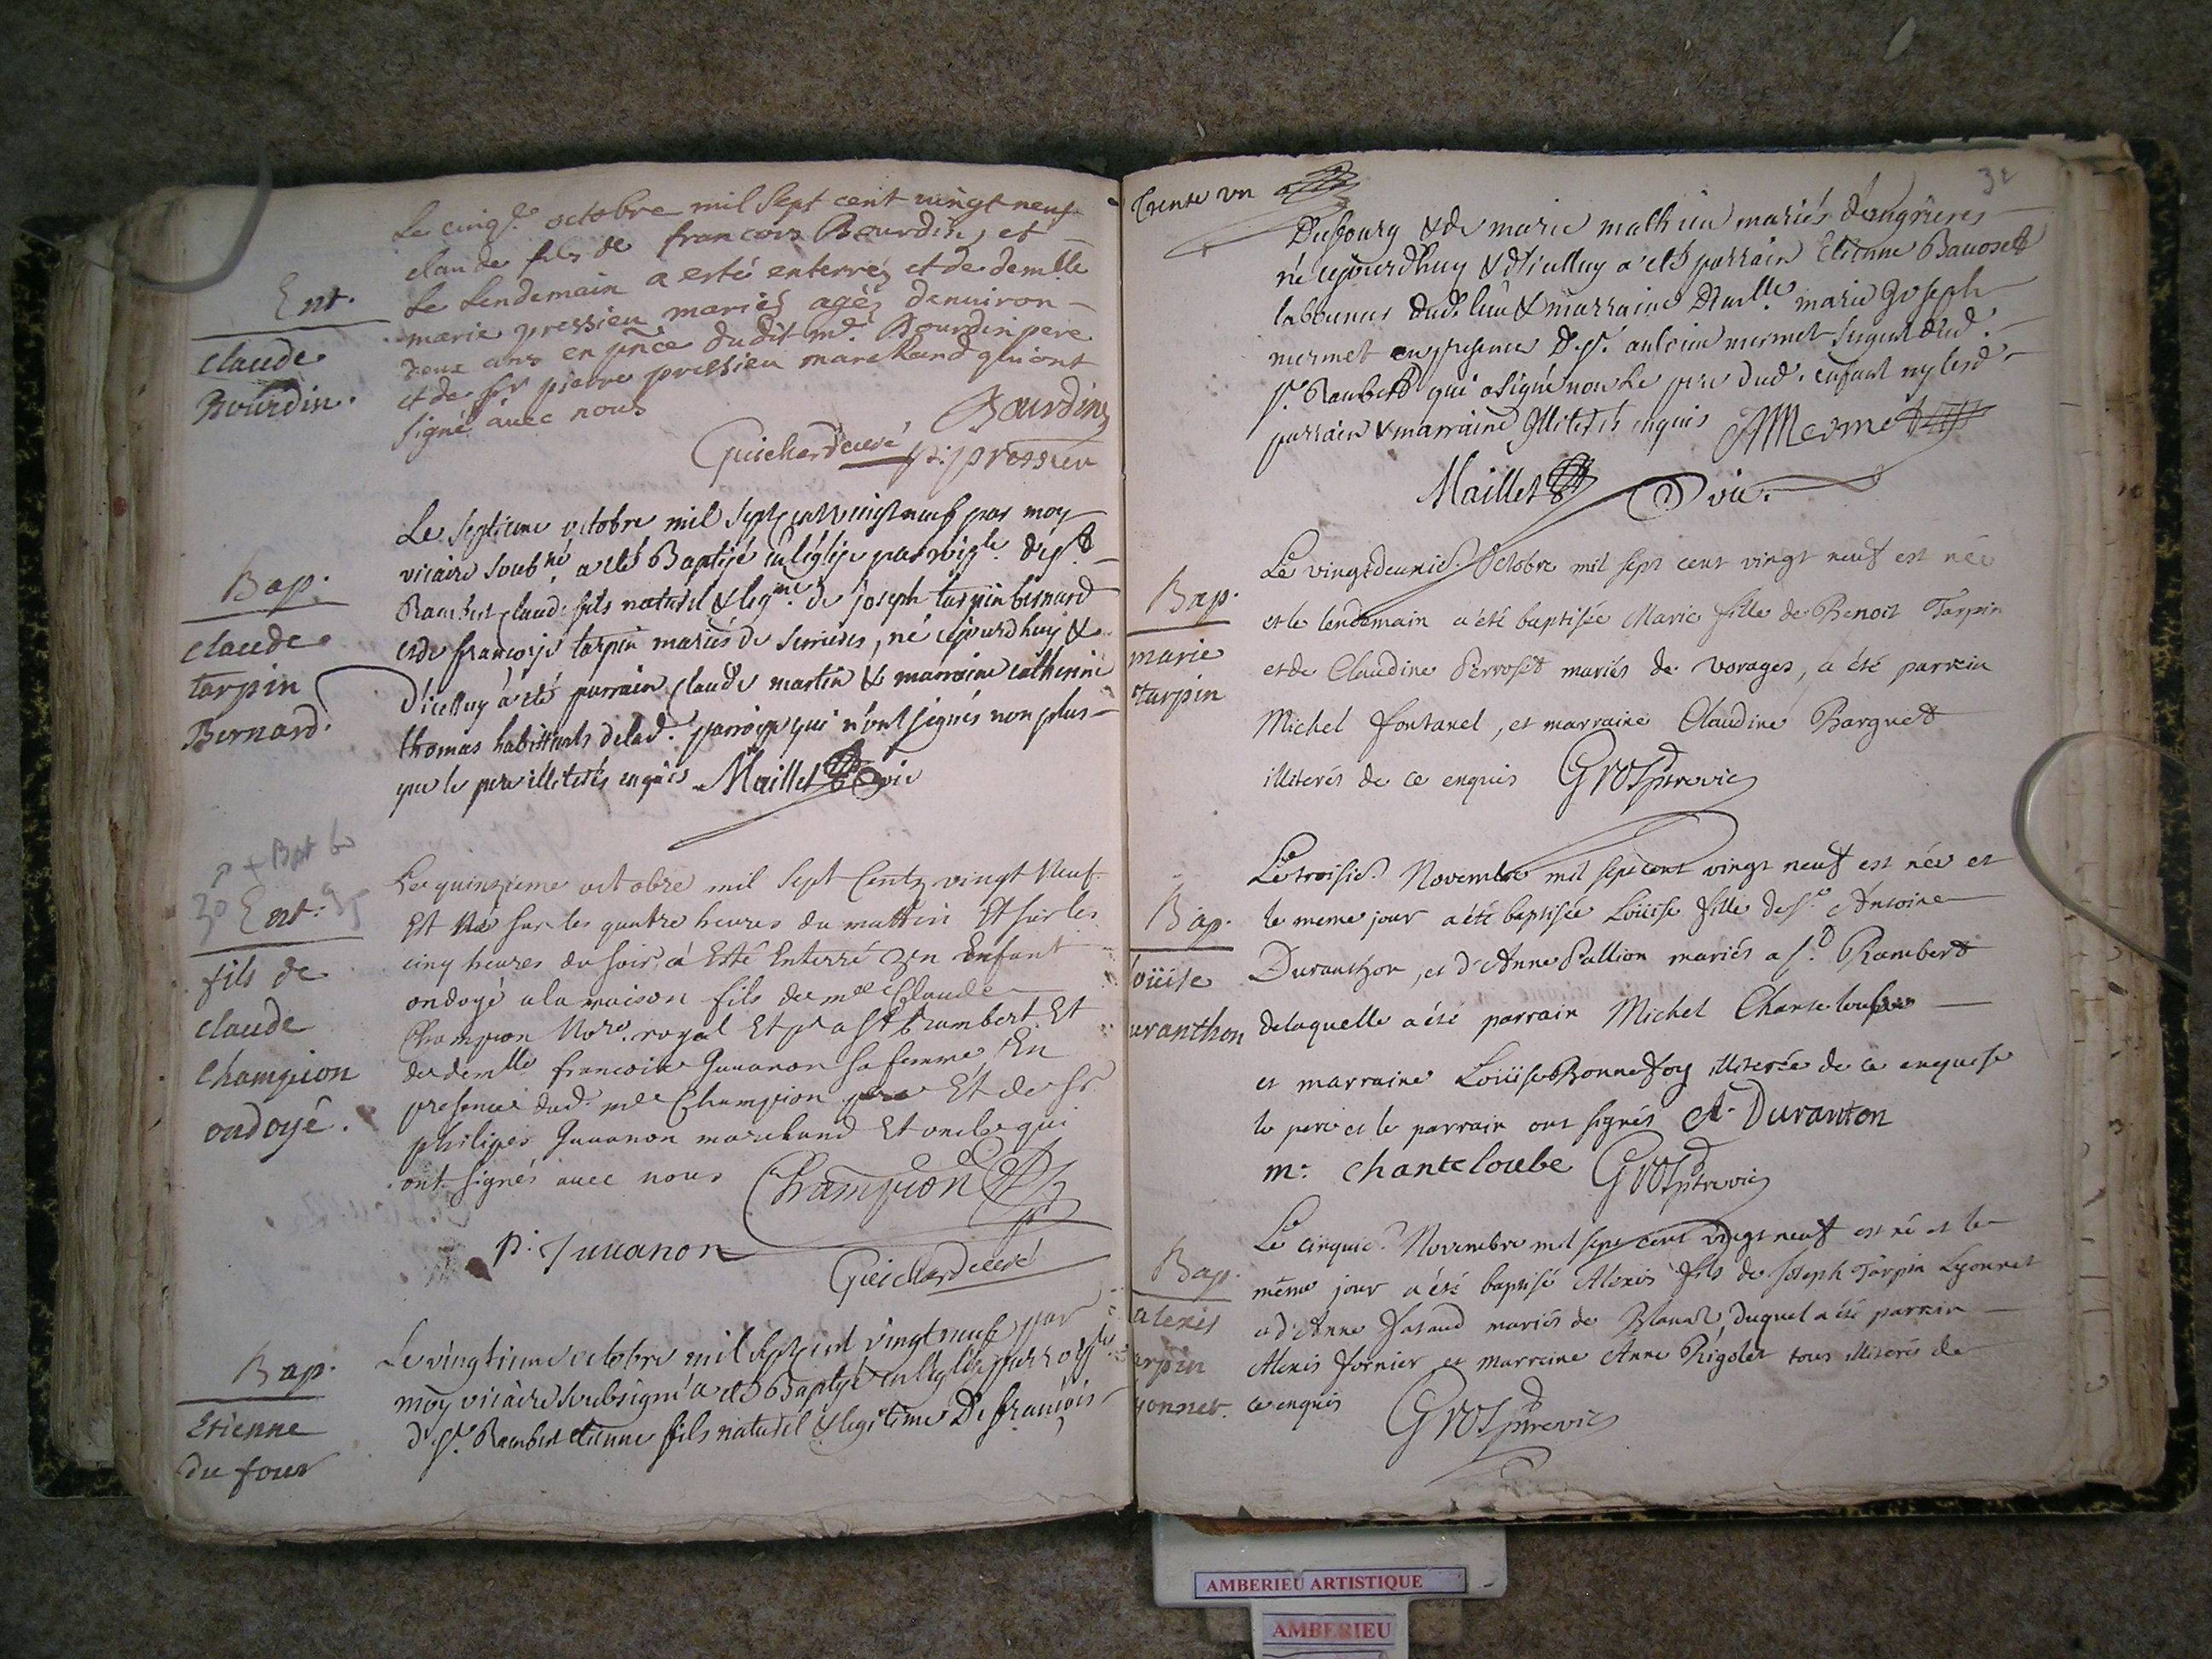 Ent.
claude
Bourdin.
Le cinq.e octobre mil sept cent vingt neuf
claude fils de francois Bourdin, et
le Lendemain a esté enterré, et de demlle
marie pressieu mariés agés denuiron
deux ans en pnce dudit md. Bourdin pere
et de sr pierre pressieu marchand qui ont
signé auec nous
Bourdin
Guichard curé
p: pressieu
Bap.
claude
tarpin
Bernard.
Le septieme octobre mil sept cent vingt neuf par moy
vicaire soubné. a eté Baptisé en l'église
Rambert claude fils naturel & legme. de joseph tarpin bernard
et de françoise tarpin mariés de Serrieres, né cejourdhuy &
d'icelluy à eté parrain claude martin & marraine catherine
thomas habittants delad. parroisse qui n'ont signés non plus
que le pere illiterés enquis Maillet vic
+ Bpt
Ent.
fils de
claude
Champion
ondoyé.
Le quinzieme octobre mil sept Centz vingt Neuf
Est Né sur les quatre heures du mattin Et sur les
cinq heures du soir à Esté Enterré un Enfant
ondoyé a la maison fils de Claude
Champion Nore. royal Et a St Rambert Et
de demlle francoise Juuanon sa femme En
presence dud. Champion pere Et de Sr
philipes Juuanon marchand Et oncle qui
ont signés auec nous Champion
p. Juuanon
Guichard curé
Bap.
Etienne
du four
Le vingtieme octobre mil sept cent vingt neuf par
moy vicaire soubsigné a eté Baptisé en l'eglise
d St. Rambert etienne fils naturel & legitime De françois
trente un
32
Dufour & de marie mathieu mariés d'angrieres
né cejourdhuy & d'icelluy a eté parrain Etienne Bauoset
laboureur dud. lieu & marraine Dlle marie Joseph
mermet en presence De sr. antoine mermet dud.
St. Rambert qui a signé non le pere dud. enfant ny lesd.
parrain & marraine illiterés enquis AMermet
Maillet vic.
Bap.
marie
tarpin
Le vingtdeuxie. Octobre mil sept cent vingt neuf est née
et le lendemain a été baptisée Marie fille de Benoit Tarpin
et de Claudine Perroset mariés de Vorages, a été parrain
Michel fontanel, et marraine Claudine Barguet
illiterés de ce enquis Grosptrevic
Bap.
loüise
uranthon
Le troisie. Novembre mil sept cent vingt neuf est née et
le meme jour a été baptisée Loüise fille de Sr. Antoine
Duranthon, et d'Anne Pallion mariés a St. Rambert
delaquelle a été parrain Michel Chanteloube
et marraine Loüise Bonnefoy illiterée de ce enquise
le pere et le parrain ont signés A. Duranton
m. chanteloube Grosptrevic
Bap.
alexis
arpin
yonnet.
Le cinquie. Novembre mil sept cent vingt neuf est né et le
même jour a été baptisé Alexis fils de Joseph Tarpin Lyonnet
et d'Anne mariés de Blanaz, duquel a été parrain
Alexis fornier et marraine Anne Rigolet tous illiterés de
ce enquis Grosptrevic
AMBERIEU ARTISTIQUE
AMBERIEU